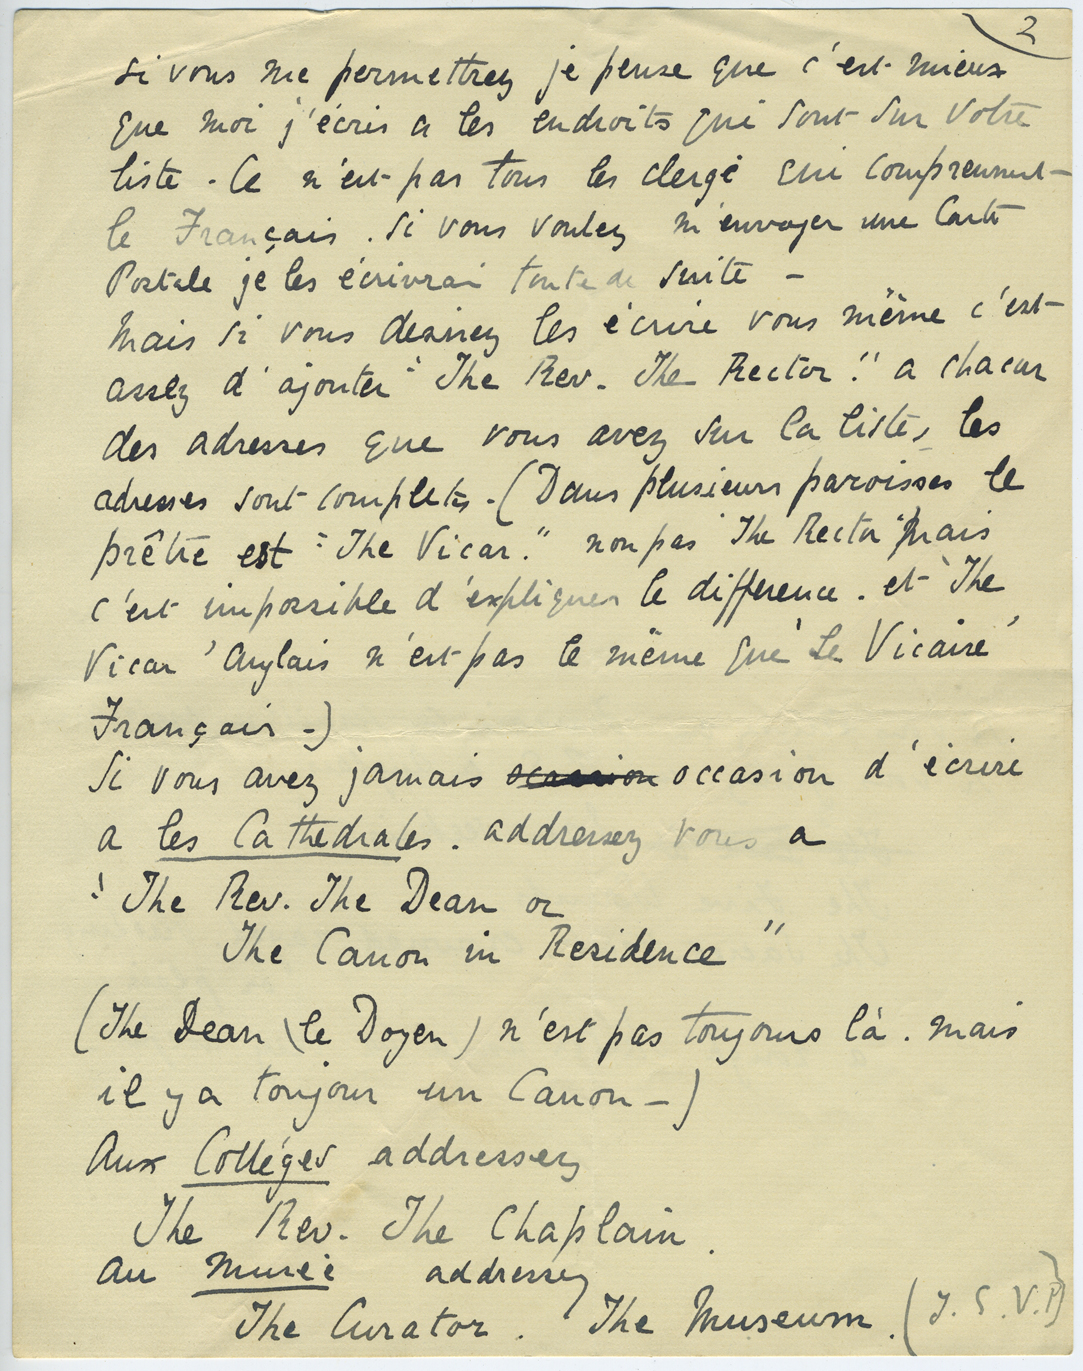 2
Si vous me permettrez je pense que c'est mieux
que moi j'écris a les endroits qui sont sur votre
liste. Ce n'est pas tous les clergé qui comprennent
le Français. Si vous voulez m'envoyer une Carte
Postale je les écrivrai toute de suite —
Mais si vous desirez les écrire vous même c'est
assez d'ajouter "The Rev. The Rector." a chacun
des adresses que vous avez sur la liste, les
adresses sont complets. (Dans plusieurs paroisses le
prêtre est "The Vicar." non pas "The Rector" Mais
c'est impossible d'expliquer le difference. et 'The
Vicar' Anglais n'est pas le même que 'Le Vicaire'
Français —)
Si vous avez jamais occasion d'écrire
a les Cathedrales. addressez vous a
"The Rev. The Dean or
The Canon in Residence"
(The Dean (le Doyen) n'est pas toujours là. mais
il y a toujour un Canon —)
Aux Colléges addressez
The Rev. The Chaplain.
Au Museé addressez
The Curator. The Museum. (T. S. V. P)